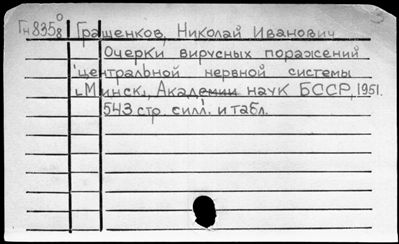 Гн8358 Гращенков, Николай Иванович
Очерки вирусных поражений
центральной нервной системы
"Минск", Академии наук БССР, 1951.
543 стр. с илл. и табл.